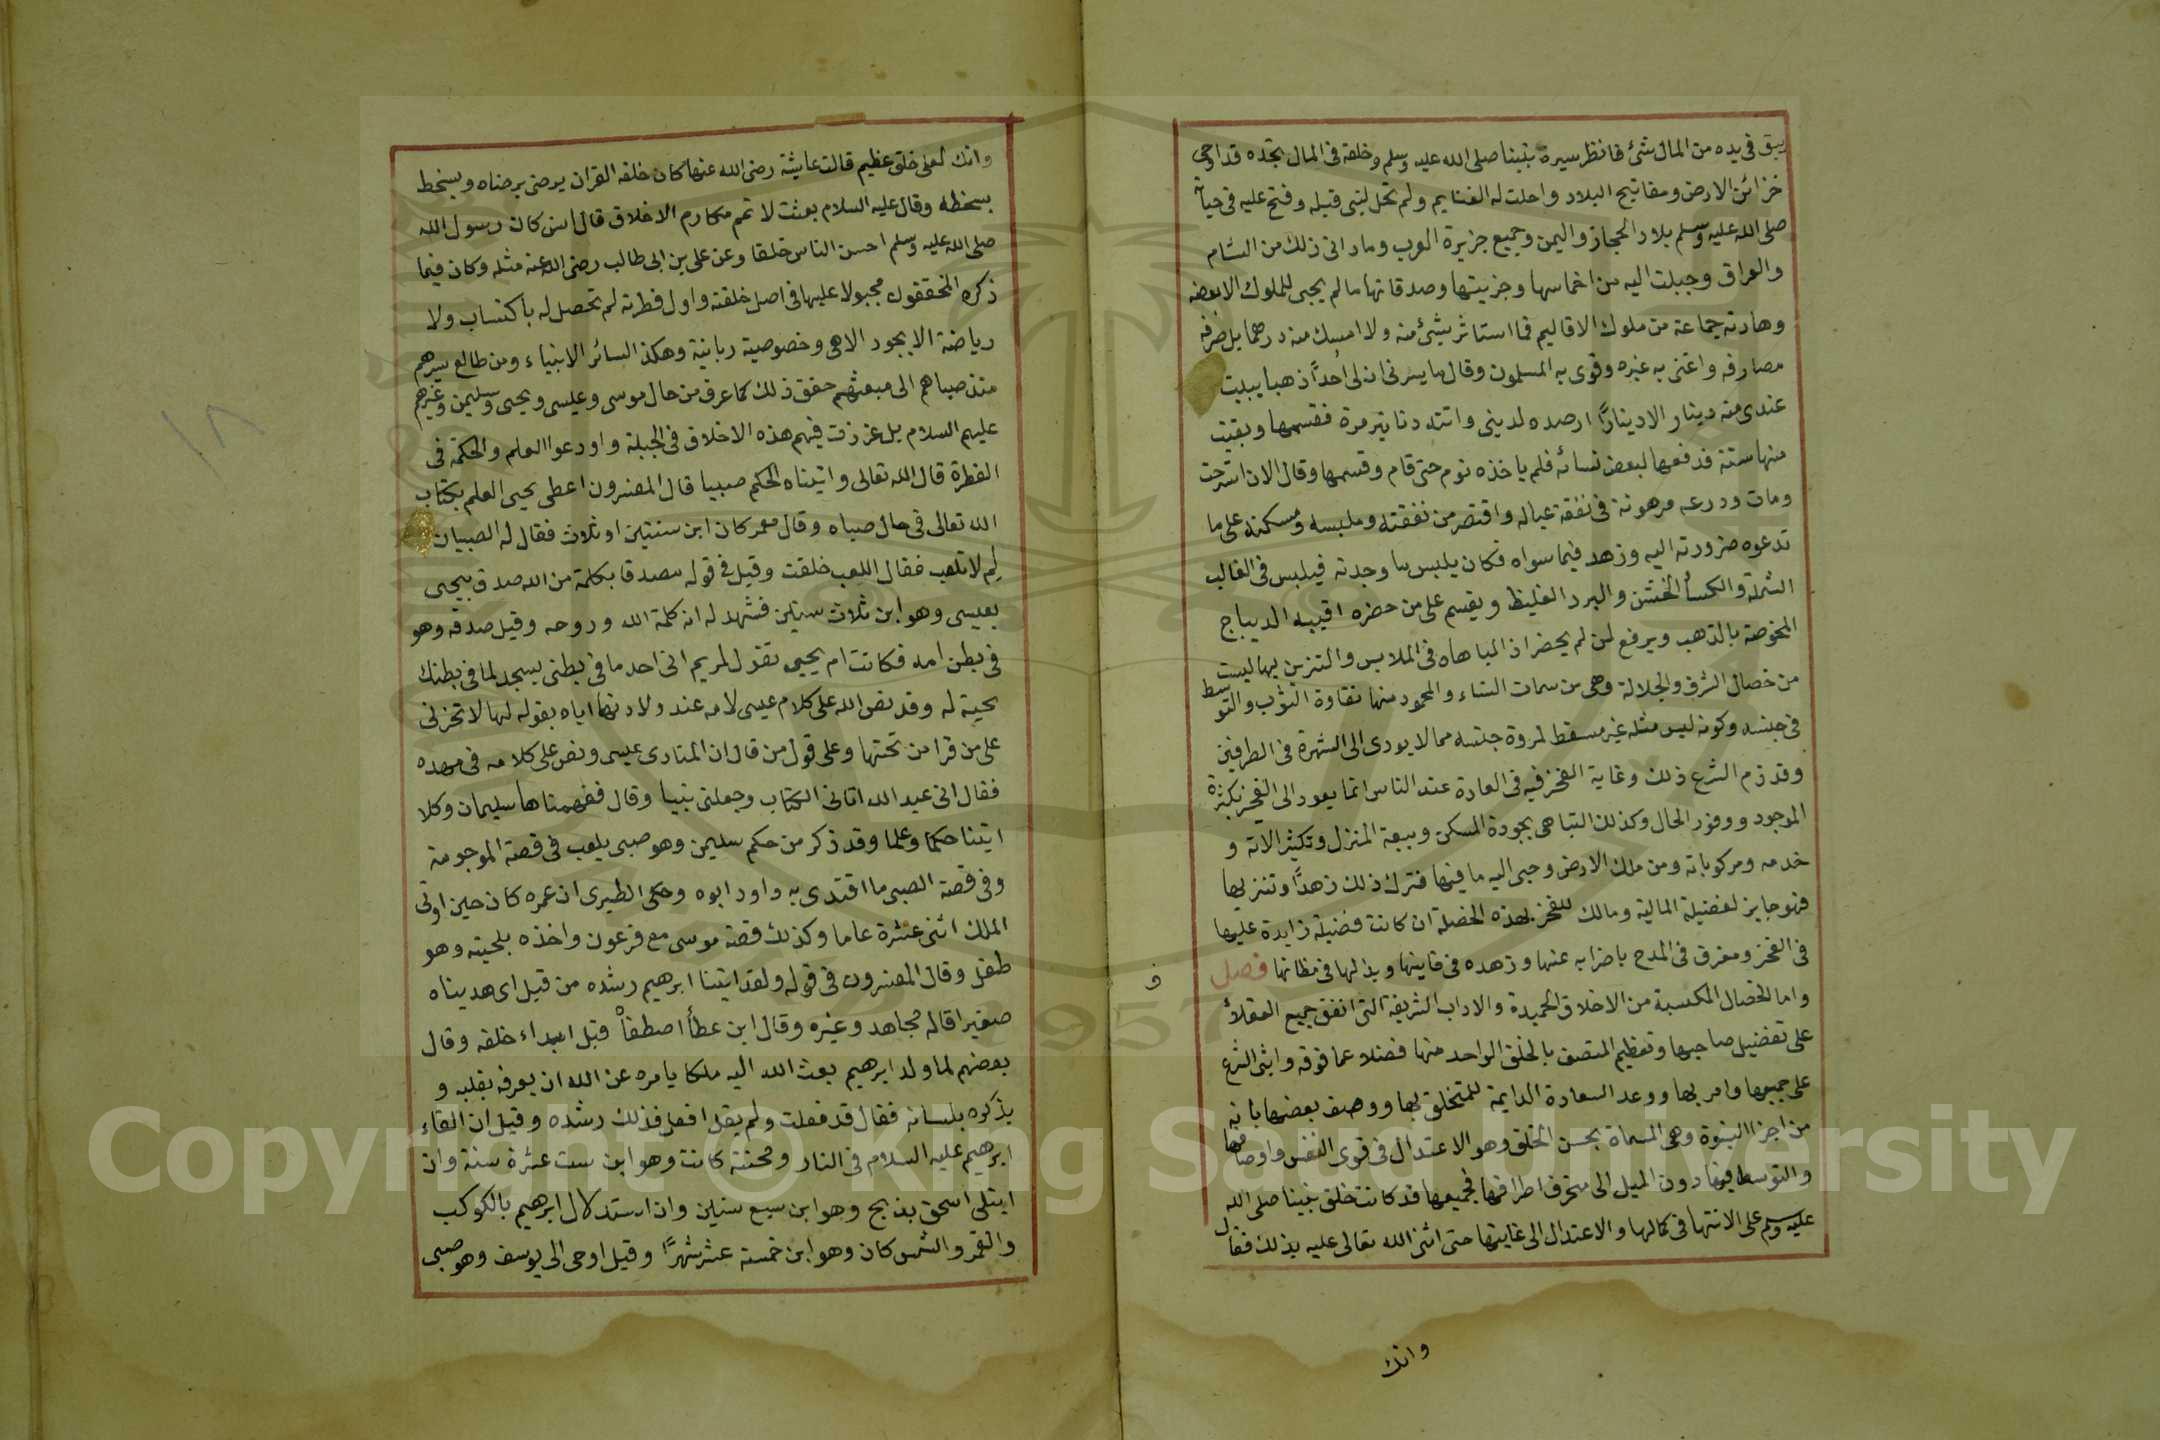 يبق في يده من المال شئ فانظر سيرة نبينا صلى الله عليه وسلم وخلقه في المال تجده قد اوتي
خزائن الارض ومفاتيح البلاد واحلت له الغنايم ولم تحل لنبي قبله وفتح عليه في حياته
صلى الله عليه وسلم بلاد الحجاز واليمن وجميع جزيرة العرب وما دانى ذلك من الشام
والعراق وجبلت اليه من اخماسها وجزيتها وصدقاتها ما لم يجبى للملوك الا بعضه
وهادته جماعة من ملوك الاقاليم فما استاثر بشئ منه ولا امسك منه درهما بل صرفه
مصارفه واغنى به غيره وقوى به المسلمون وقال ما يسرني ان لي احدا ذهبا يبيت
عندي منه دينار الا دينارًا ارصده لديني واتته دنانير مرة فقسمها وبقيت
منها ستة فدفعها لبعض نسائه فلم ياخذه نوم حتى قام وقسمها وقال الان استرحت
ومات ودرعه مرهونة في نفقة عياله واقتصر من نفقته وملبسه ومسكنه على ما
تدعوه ضرورته اليه وزهد فيما سواه فكان يلبس ما وجدته فيلبس في الغالب
الشملة والكسأ الخشن والبرد الغليظ ويقسم على من حضره اقبيه الديباج
المخوصة بالذهب ويرفع لمن لم يحضر اذ المباهاه في الملابس والتزين بها ليست
من خصال الشرف والجلالة وهي من سمات النساء والمحمود منها نقاوة الثوب والتوسط
في جنسه وكونه لبس مثله غير مسقط لمروة جنسه مما لا يودي الى الشهرة في الطرفين
وقد ذم الشرع ذلك وغاية الفخر فيه في العادة عند الناس انما يعود الى الفخر بكثرة
الموجود ووفور الحال وكذلك التباهي بجودة المسكن وسعة المنزل وتكثير الاته و
خدمه ومركوباته ومن ملك الارض وجبى اليه ما فيها فترك ذلك زهدًا وتنزيها
فهو حايز لفضيلة المالية ومالك للفخر بهذه الخصلة ان كانت فضيلة زايدة عليها
في الفخر ومعرق في المدح باضرابه عنها وزهده في فانيها وبذلها في مظانها فصل
واما الخصال المكتسبة من الاخلاق الحميدة والاداب الشريفة التي اتفق جميع العقلاْ
على تفضيل صاحبها وتعظيم المتصف بالخلق الواحد منها فضلا عما فوقه واثنى الشرع
على جميعها وامر بها ووعد السعادة الدايمة للمتخلق بها ووصف بعضها بانه
من اجزا النبوة وهي المسماة بحسن الخلق وهو الاعتدال في قوى النفس واوصافها
والتوسط فيها دون الميل الى منحرف اطرافها فجميعها قد كانت خلق نبينا صلى الله
عليه وسلم على الانتها في كمالها والاعتدال الى غايتها حتى اثنى الله تعالى عليه بذلك فقال
وانك
وانك لعلى خلق عظيم قالت عايشة رضى الله عنها كان خلقه القران يرضى برضاه ويسخط
بسخطه وقال عليه السلام بعثت لاتمم مكارم الاخلاق قال انس كان رسول الله
صلى الله عليه وسلم احسن الناس خلقا وعن علي بن ابي طالب رضى الله عنه مثله وكان فيما
ذكره المحققون مجبولا عليها في اصل خلقته واول فطرته لم تحصل له باكتساب ولا
رياضة الا بجود الاهي وخصوصية ربانية وهكذا لسائر الانبياء ومن طالع سيرهم
منذ صباهم الى مبعثهم حقق ذلك كما عرف من حال موسى وعيسى ويحيى وسليمن وغيرهم
عليهم السلام بل غرزت فيهم هذه الاخلاق في الجبلة واودعوا العلم والحكمة في
الفطرة قال الله تعالى واتيناه الحكم صبيا قال المفسرون اعطى يحيى العلم بكتاب
الله تعالى في حال صباه وقال معمر كان ابن سنتين او ثلاث فقال له الصبيان
لم لا تلعب فقال اللعب خلقت وقيل في قوله مصدقا بكلمة من الله صدق بيحيى
بعيسى وهو ابن ثلاث سنين فشهد له انه كلمة الله وروحه وقيل صدقه وهو
في بطن امه فكانت ام يحيى تقول لمريم اني اجد ما في بطني يسجد لما في بطنك
تحية له وقد نص الله على كلام عيسى لامه عند ولادتها اياه بقوله لها لا تحزني
على من قرا من تحتها وعلى قول من قال ان المنادى عيسى ونص على كلامه في مهده
فقال اني عبد الله اتاني الكتاب وجعلني نبيا وقال ففهمناها سليمان وكلا
اتينا حكما وعلما وقد ذكر من حكم سليمن وهو صبي يلعب في قصة المرجومة
وفي قصة الصبي ما اقتدى به داود ابوه وحكى الطبري ان عمره كان حين اوتى
الملك اثنى عشرة عاما وكذلك قصة موسى مع فرعون واخذه بلحيته وهو
طفل وقال المفسرون في قوله ولقد اتينا ابرهيم رشده من قبل اى هديناه
صغيرا قاله مجاهد وغيره وقال ابن عطأ اصطفاْ قبل ابداء خلقه وقال
بعضهم لما ولد ابرهيم بعث الله اليه ملكا يامره عن الله ان يعرفه بقلبه و
يذكره بلسانه فقال قد فعلت ولم يقل افعل فذلك رشده وقيل ان القاء
ابرهيم عليه السلام في النار ومحنته كانت وهو ابن ست عشرة سنة وان
ابتلى اسحق بذبح وهو ابن سبع سنين وان استدلال ابرهيم بالكوكب
والقمر والشمس كان وهو ابن خمسة عشر شهرًا وقيل اوحى الى يوسف وهو صبى
١٨
و
1957
Copyright © King Saud University